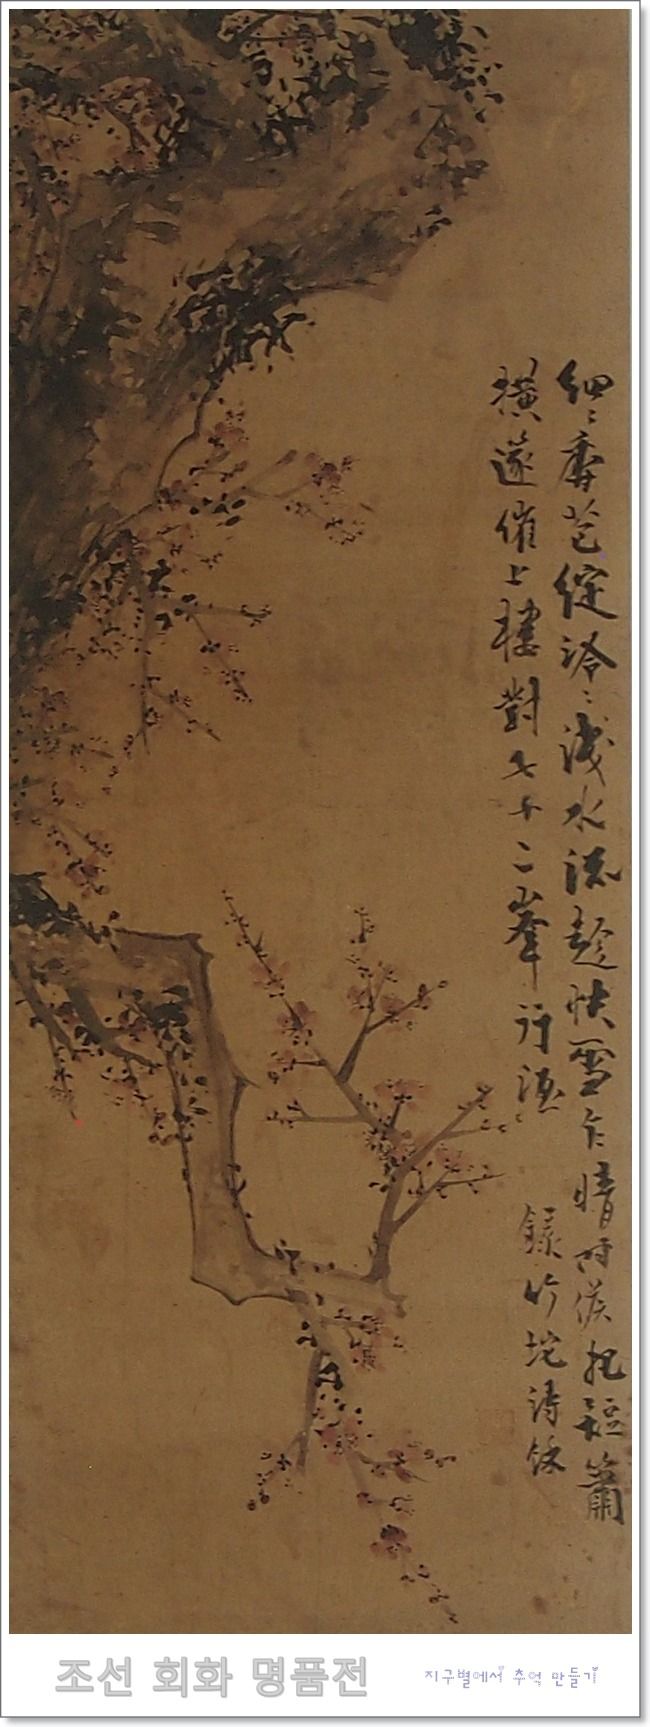 細〻香苞綻泠〻淺水流趁快雪乍晴時候把短簫
橫篴催上樓對七十二峯行酒
錄竹垞詩餘
조선 회화 명품전
지구별에서 추억 만들기